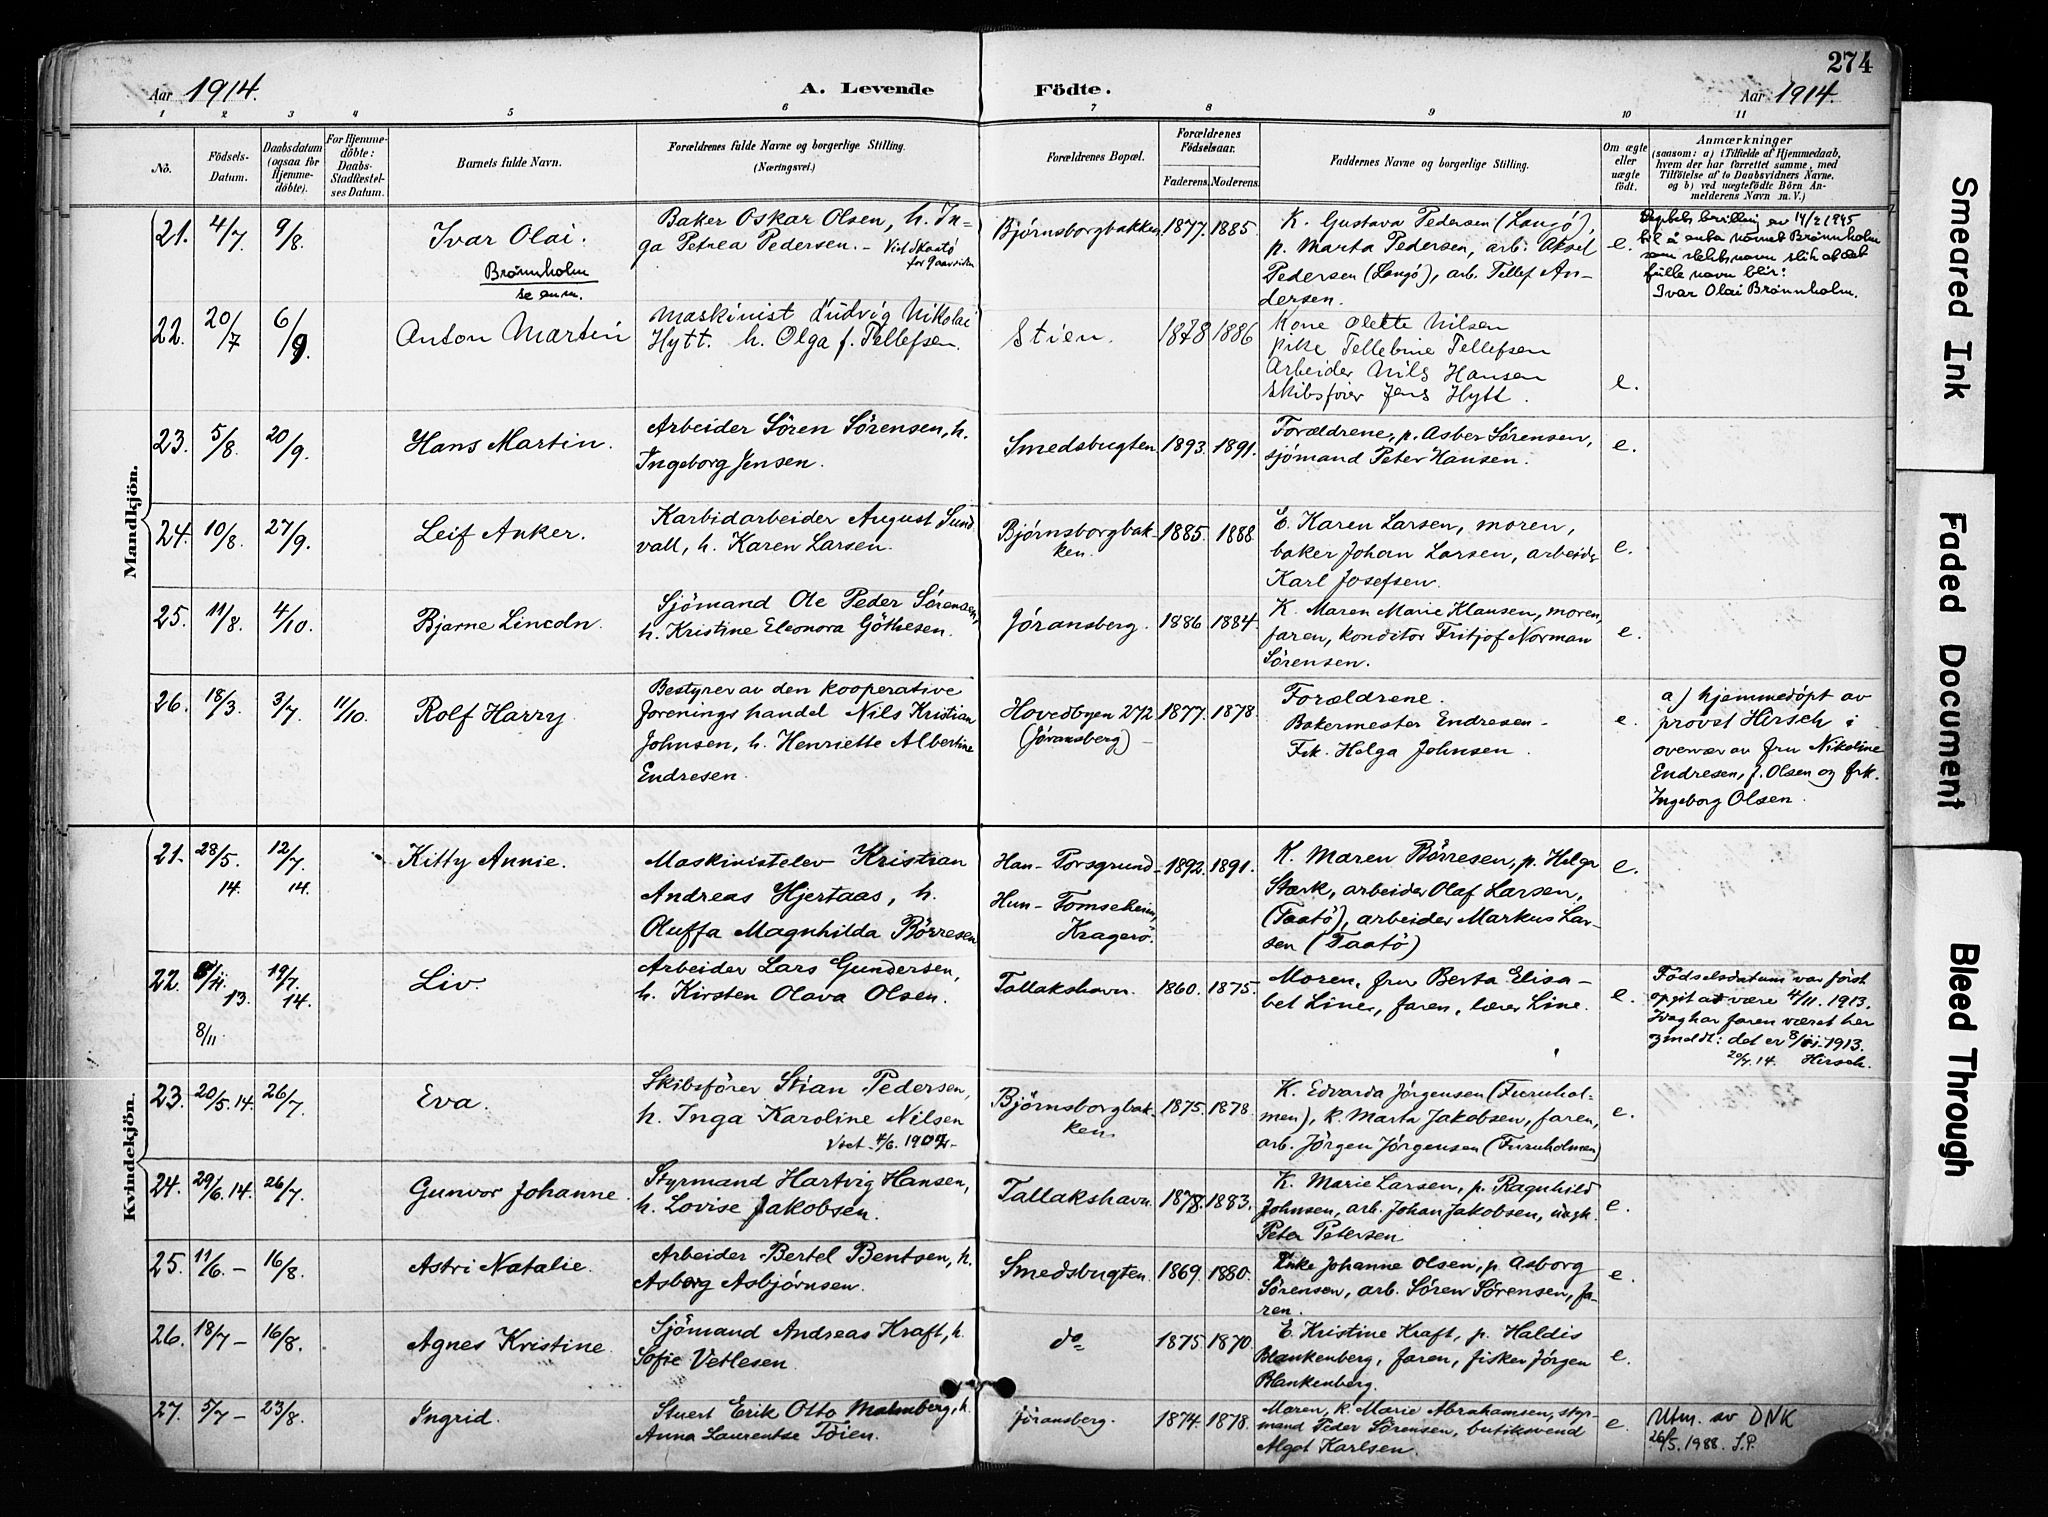 274
Aar 1914. A. Levende Födte. Aar 1914.
1 2 3 4 5 6 7 8 9 10 11
No.
Födsels-
Datum.
Daabsdatum
(ogsaa for
Hjemme-
döbte).
For Hjemme-
döbte:
Daabs-
Stadfæstel-
ses Datum.
Barnets fulde Navn.
Forældrenes fulde Navne og borgerlige Stilling.
(Næringsvei.)
Forældrenes Bopæl.
Forældrenes
Fødselsaar.
Faderens. Moderens.
Faddernes Navne og borgerlige Stilling.
Om ægte
eller
uægte
födt.
Anmærkninger
(saasom: a) i Tilfælde af Hjemmedaab,
hvem der har forrettet samme, med
Tilföielse af to Daabsvidners Navne,
og b) ved uægtefödte Börn An-
melderens Navn m. V.)
Mandkjön.
21. 4/7 9/8. Ivar Olai.
Brønnholm
se anm.
Baker Oskar Olsen, h. In-
ga Petrea Pedersen. - Viet Skaatø
for 9 aar siden
Bjørnsborgbakken 1877. 1885.
K. Gustava Pedersen (Langö),
p. Marta Pedersen, arb. Aksel
Pedersen (Langö), arb. Tellef An-
dersen.
e.
bevilling av 14/2 1945
til å anta navnet Brønnholm
som slektsnavn slik at det
fulle navn blir:
Ivar Olai Brønnholm.
22. 20/7 6/9. Anton Martin
Maskinist Ludvig Nikolai
Hytt. h. Olga f. Tellefsen.
Stien. 1878 1886
Kone Olette Nilsen
pike Tellebine Tellefsen
Arbeider Nils Hansen
Skibsfører Jens Hytt.
e.
23. 5/8. 20/9. Hans Martin.
Arbeider Sören Sörensen, h.
Ingeborg Jensen.
Smedsbugten 1893. 1891.
Forældrene, p. Asber Sörensen,
sjömand Peter Hansen.
e.
24. 10/8. 27/9. Leif Anker.
Karbidarbeider August Sund
vall, h. Karen Larsen.
Bjørnsborgbak-
ken. 1885. 1888
E. Karen Larsen, moren,
baker Johan Larsen, arbeide
Karl Josefsen.
e.
25. 11/8. 4/10. Bjarne Lincoln.
Sjömand Ole Peder Sörensen,
h. Kristine Eleonora Göthesen.
Jöransberg. 1886 1884.
K. Maren Marie Klausen, moren,
faren, konditor Fritjof Norman
Sörensen.
e.
26. 18/3. 3/7. 11/10. Rolf Harry
Bestyrer av den kooperative
forenings handel Nils Kristian
Johnsen, h. Henriette Albertine
Endresen.
Hovedbyen 272
(Jöransberg) 1877. 1878.
Forældrene.
Bakermester Endresen -
Frk. Helga Johnsen.
e.
a) hjemmedöpt av
provst Hirsch i
overvær av fru Nikoline
Endresen, f. Olsen og frk.
Ingeborg Olsen.
Kvindekjön.
21. 28/5. 14. 12/7. 14. Kitty Annie.
Maskinistelev Kristian
Andreas Hjertaas, h.
Oluffa Magnhilda Börresen
Han - Porsgrund
Hun - Tomseheim,
Kragerö. 1892. 1891.
K. Maren Börresen, p. Helga
Stærk, arbeider Olaf Larsen,
(Taatö), arbeider Markus Lar-
sen (Taatö)
e.
22. 8/11. 13. 8/11. 19/7. 14. Liv.
Arbeider Lars Gundersen,
h. Kirsten Olava Olsen.
Tallakshavn. 1860. 1875.
Moren, fru Berta Elisa-
bet Line, faren, lærer Line.
e.
Födselsdatum var först
opgit at være 4/11. 1913.
Idag har faren været her
og meldt: det er 8/11. 1913.
20/7. 14. Hirsch.
23. 20/5. 14. 26/7. Eva.
Skibsförer Stian Pedersen,
h. Inga Karoline Nilsen
Viet 4/6. 1902.
Bjørnsborgbak-
ken. 1875. 1878.
K. Edvarda Jörgensen (Furuhol-
men), k. Marta Jakobsen, faren,
arb. Jörgen Jörgensen (Furuholmen)
e.
24. 29/6. 14. 26/7. Gunvor Johanne.
Styrmand Hartvig Hansen,
h. Lovise Jakobsen.
Tallakshavn. 1878. 1883.
K. Marie Larsen, p. Ragnhild
Johnsen, arb. Johan Jakobsen, ungk.
Peter Petersen
e.
25. 11/6. - 16/8. Astri Natalie.
Arbeider Bertel Bentsen, h.
Asborg Asbjørnsen.
Smedsbugten. 1869. 1880.
Enke Johanne Olsen, p. Asborg
Sörensen, arb. Sören Sörensen, fa-
ren.
e.
26. 18/7 - 16/8. Agnes Kristine.
Sjömand Andreas Kraft, h.
Sofie Vetlesen.
do 1875. 1870.
E. Kristine Kraft, p. Haldis
Blankenberg, faren, fisker Jörgen
Blankenberg.
e.
27. 5/7 - 23/8. Ingrid.
Stuert Erik Otto Malmberg, h.
Anna Laurentse Töien.
Jöransberg. 1874. 1878.
Moren, k. Marie Abrahamsen, styr-
mand Peder Sörensen, butiksvend
Algot Karlsen.
e.
Utm. av DNK
26/5. 1988. S.P.
Smeared Ink
Faded Document
Bleed Through